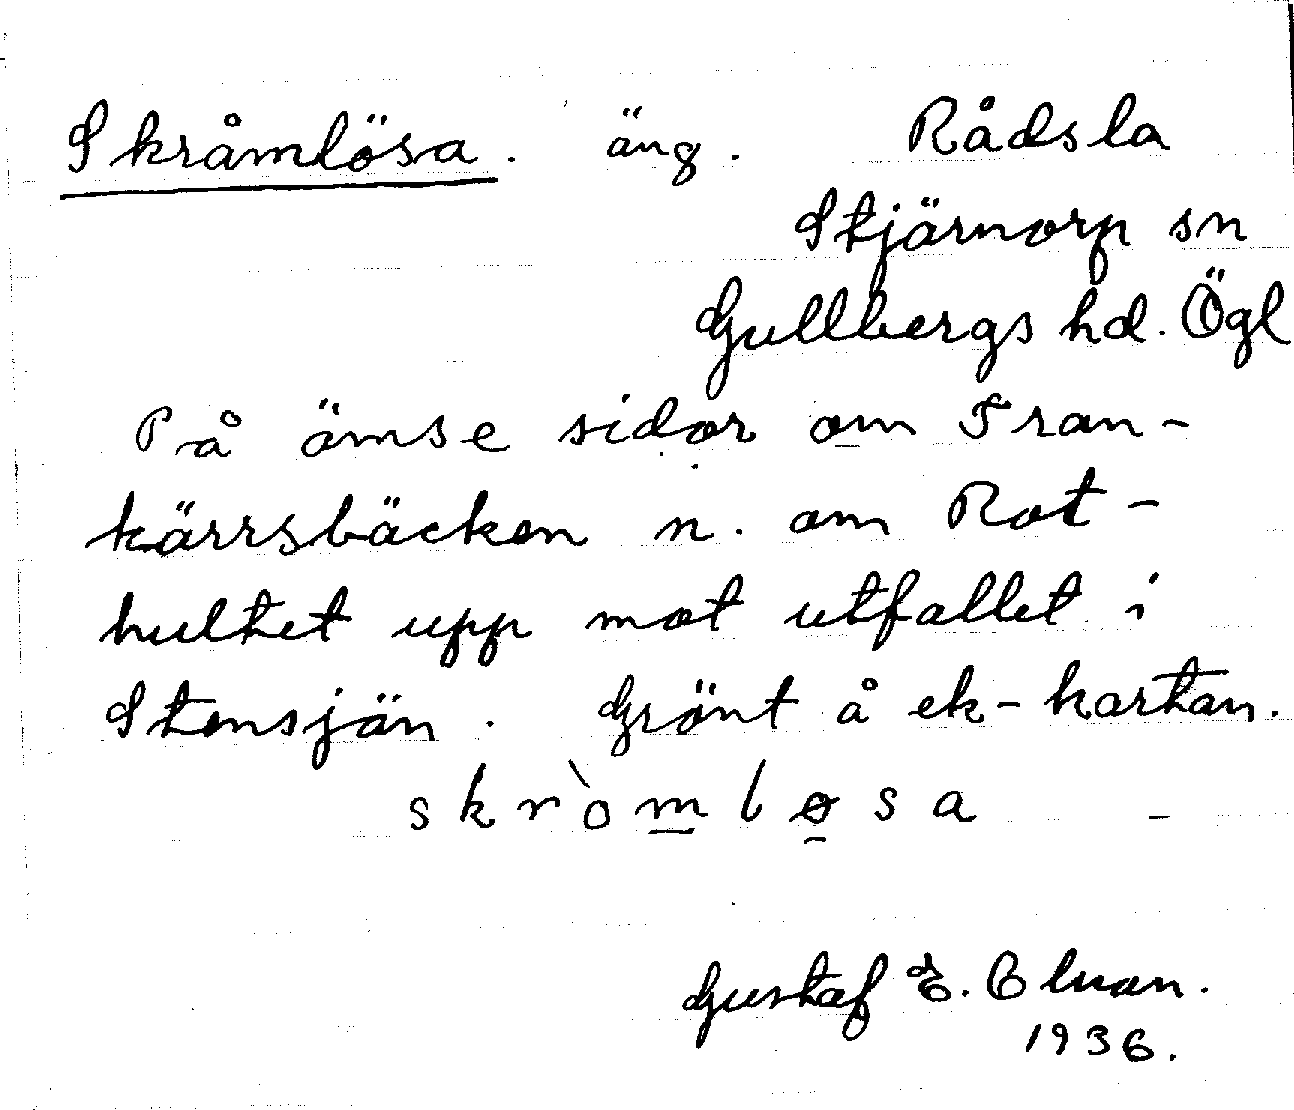 Skråmlösa. äng. Rådsla
Stjärnorp sn
Gullbergs hd. Ögl
På ömse sidor om Tran-
kärrsbäcken n. om Rot-
hultet upp mot utfallet i
Stensjön. Grönt å ek-kartan.
skròmløsa
Gustaf E.
1936.